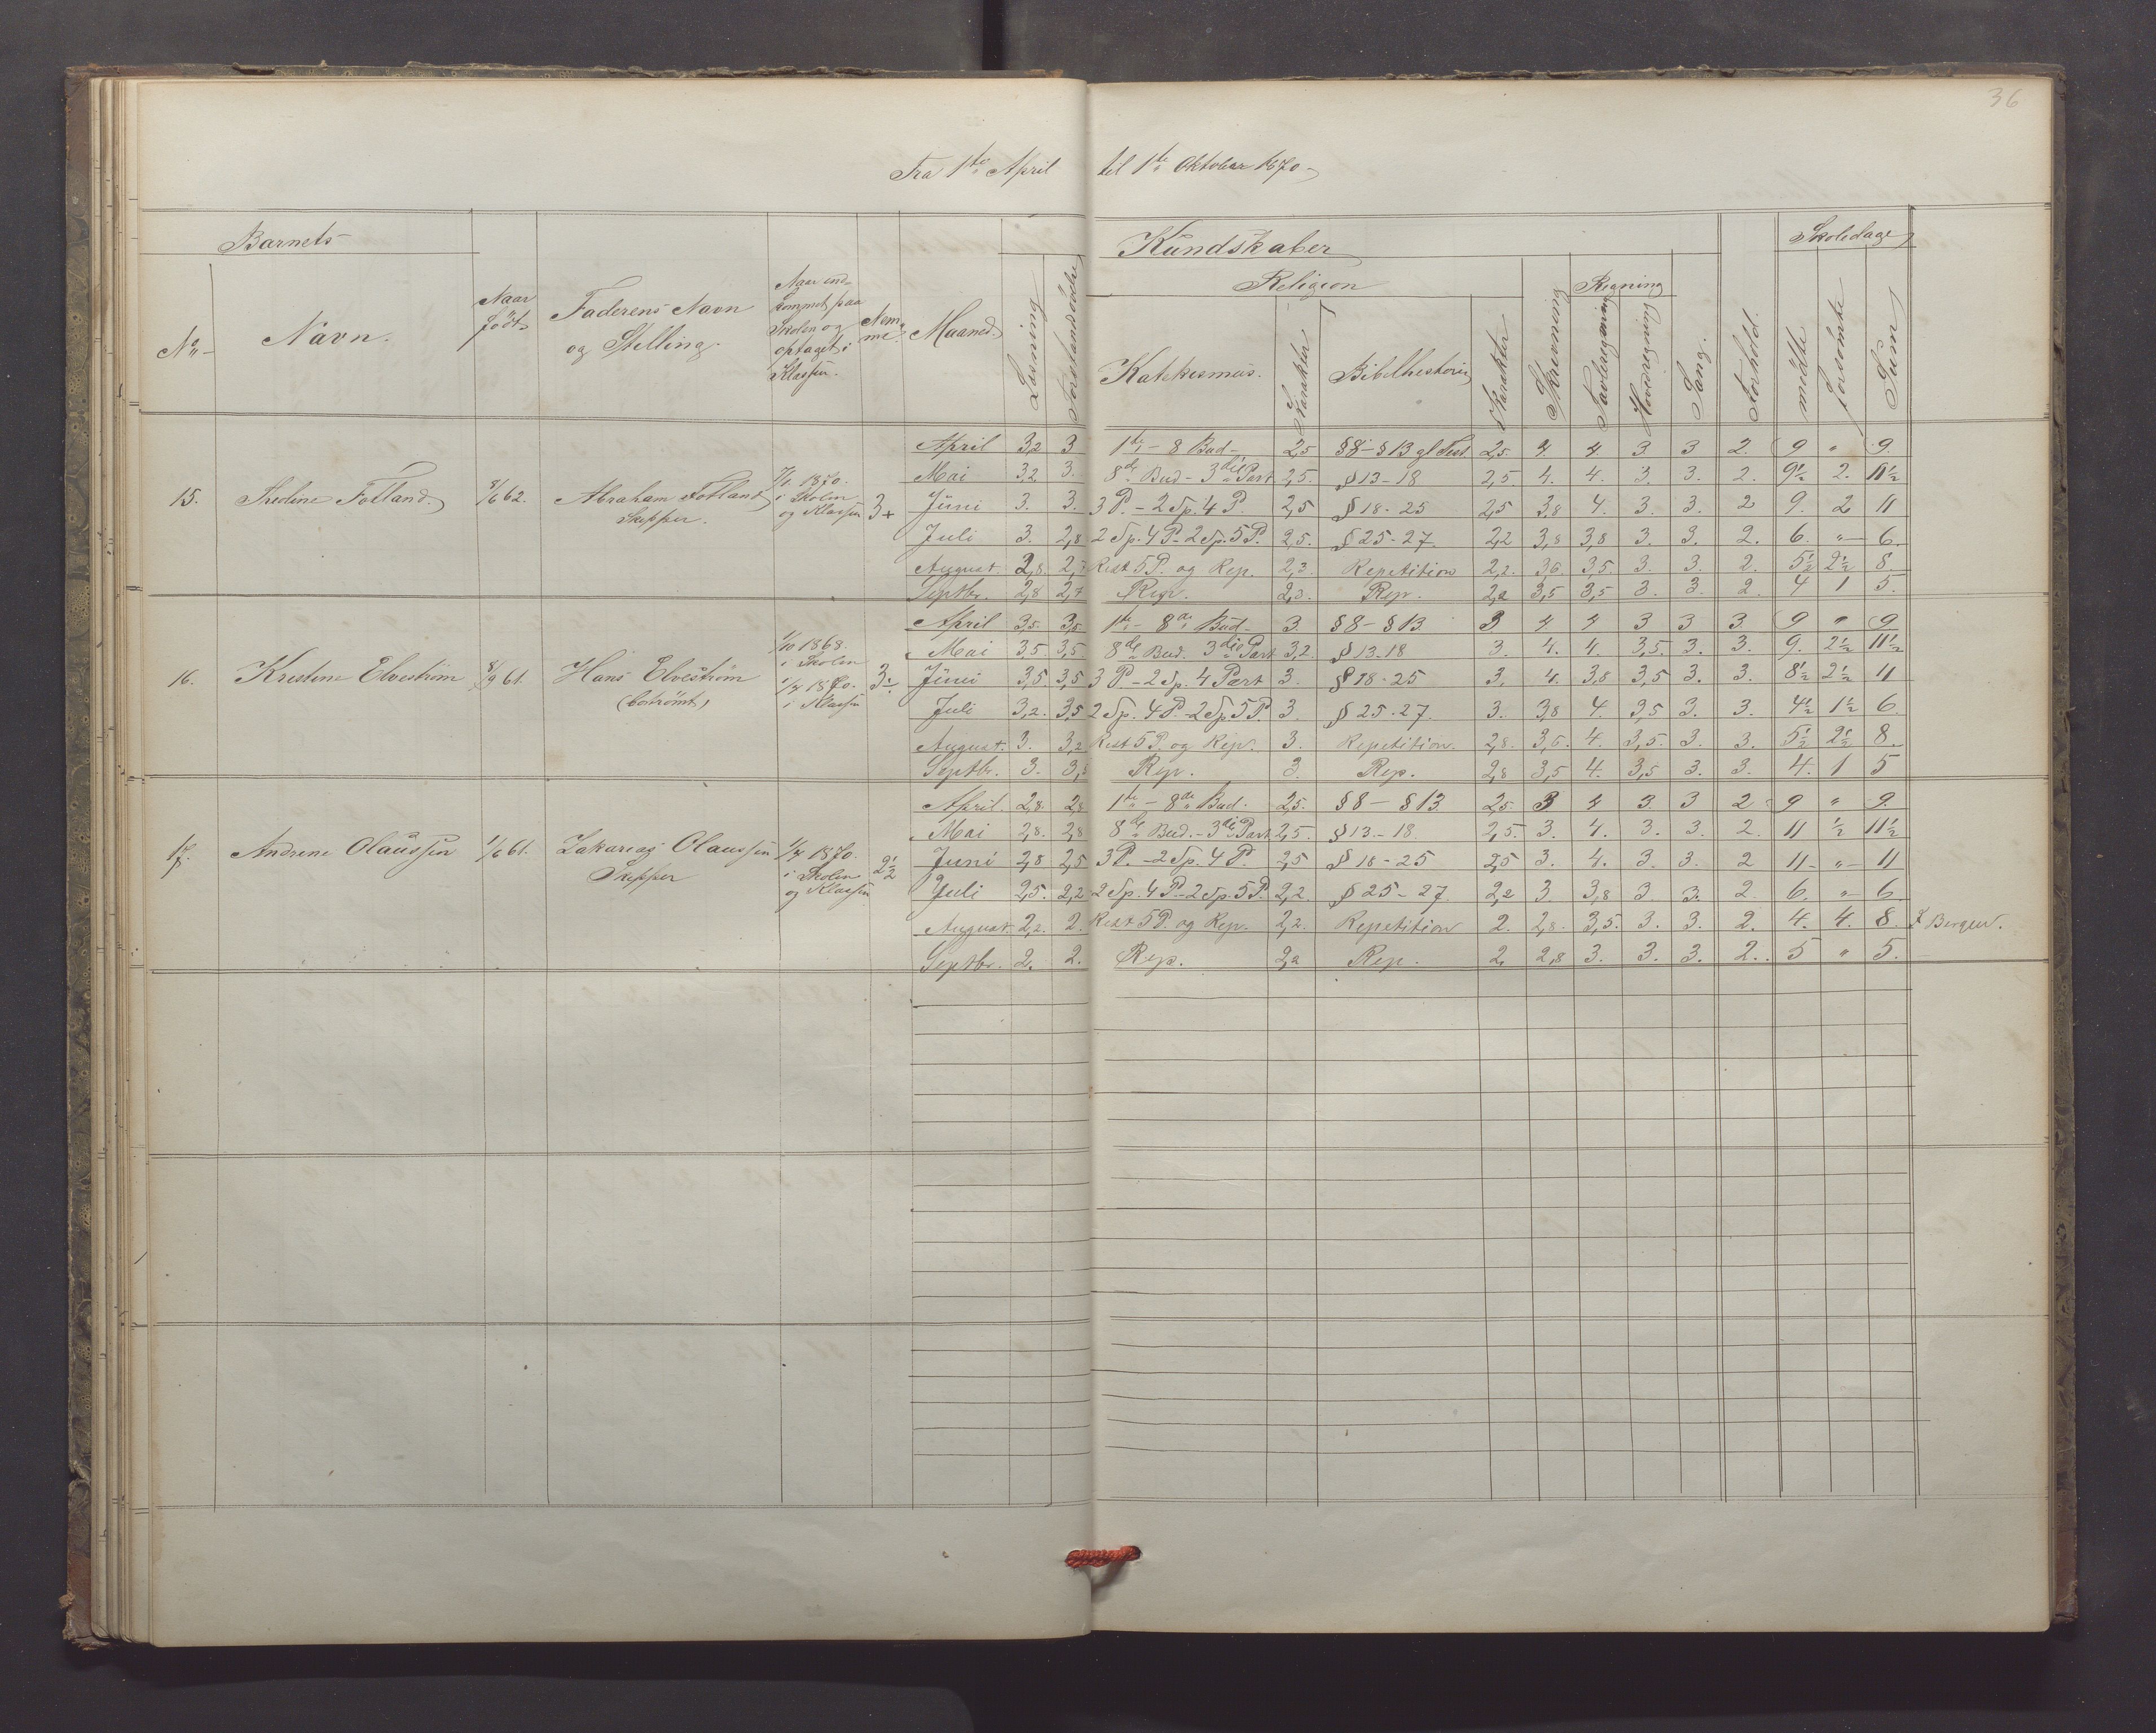 36
Fra 1ste April til 1ste Oktober 1870
Barnets Kundskaber Skoledage
Religion Regning
No Navn. Naar født Faderens Navn og Stilling. Naar indkommet paa Skolen og optaget i Klassen. Nemme. Maaned. Læsning Forstandsøvelse Katekismus. Karakter Bibelhistorie Karakter Skrivning Tavleregning Hovedregning Sang. Forhold. mødte forsømte Sum
April 3,2 3 1ste - 8 Bud - 2,5 §8 - §13 gl Test 2,5 4. 4. 3 3 2. 9 " 9.
Mai 3,2 3. 8de Bud - 3die Part 2,5. §13-18 2,5. 4. 4. 3. 3. 2. 9½ 2. 11½
15. Fredine Fotland. 8/6 62. Abraham Fotland Skipper. 1870. i Skolen og Klassen 3+ Juni 3. 3. 3 P. - 2 Sp. 4 P. 2,5 §18-25 2,5 3,8 4. 3. 3. 2 9. 2 11
Juli 3. 2,8 2 Sp. 4 P - 2 Sp. 5 P. 2,5. §25-27. 2,2 3,8 3,8 3. 3. 2. 6. " 6.
August. 2,8. 2,7 Rest 5 P. og Rep. 2,3. Repetition 2,2. 3,6 3,5. 3. 3. 2. 5½ 2½ 8.
Septbr. 2,8 2,7 Rep. 2,3. Rep. 2,2 3,5 3,5 3. 3. 2. 4 1 5.
April 3,5. 3,5 1ste - 8de Bud - 3. §8 - §13. 3 4 4 3 3 3 9 " 9
Mai 3,5. 3,5. 8de Bud. 3die Part 3,2. §13-18 3. 4. 4. 3,5. 3. 3. 9. 2½ 11½
16. Kristine Elvestrøm 8/9 61. Hans Elvestrøm (bortrømt) 1/10 1868. i Skolen 1/4 1870. i Klassen 3- Juni 3,5 3,5 3 P. - 2 Sp. 4 Part 3. §18-25 3. 4. 3,8 3,5 3. 3. 8½ 2½ 11
Juli 3,2. 3,5 2 Sp. 4 P. - 2 Sp. 5 P. 3. §25-27. 3. 3,8 4. 3,5 3. 3. 4½ 1½ 6.
August. 3. 3,2 Rest 5 P. og Rep. 3. Repetition. 2,8. 3,6. 4. 3,5. 3. 3. 5½ 2½ 8.
Septbr. 3. Rep. 3. Rep. 2,8 3,5 4. 3,5 3. 3. 4. 1 5
April. 2,8. 2,8 1ste - 8de Bud. 2,5. §8 - §13. 2,5 3 4 3. 3 2 9 " 9.
Mai 2,8. 2,8 8de Bud. - 3die Part 2,5. §13.-18. 2,5. 3. 4. 3. 3. 2. 11 ½ 11½
17. Andrine Olaussen 1/6 61. Zakarias Olaussen Skipper 1/4 1870. i Skolen og Klassen 2½ Juni 2,8 2,5 3 P. - 2 Sp. 4 P. 2,5 §18-25 2,5 3. 4. 3. 3. 2 11 " 11
Juli 2,5. 2,2 2 Sp. 4 P. - 2 Sp. 5 P. 2,2. §25-27. 2,2 3. 3,8 3. 3. 2. 6. " 6.
August. 2,2. 2. Rest 5 P. og Rep. 2,2. Repetition 2. 2,8. 3,5. 3. 3. 2. 4. 4. 8. I Bergen.
Septbr. 2. 2. Rep. 2,2 Rep. 2. 2,8 3. 3. 3. 2. 5 " 5.